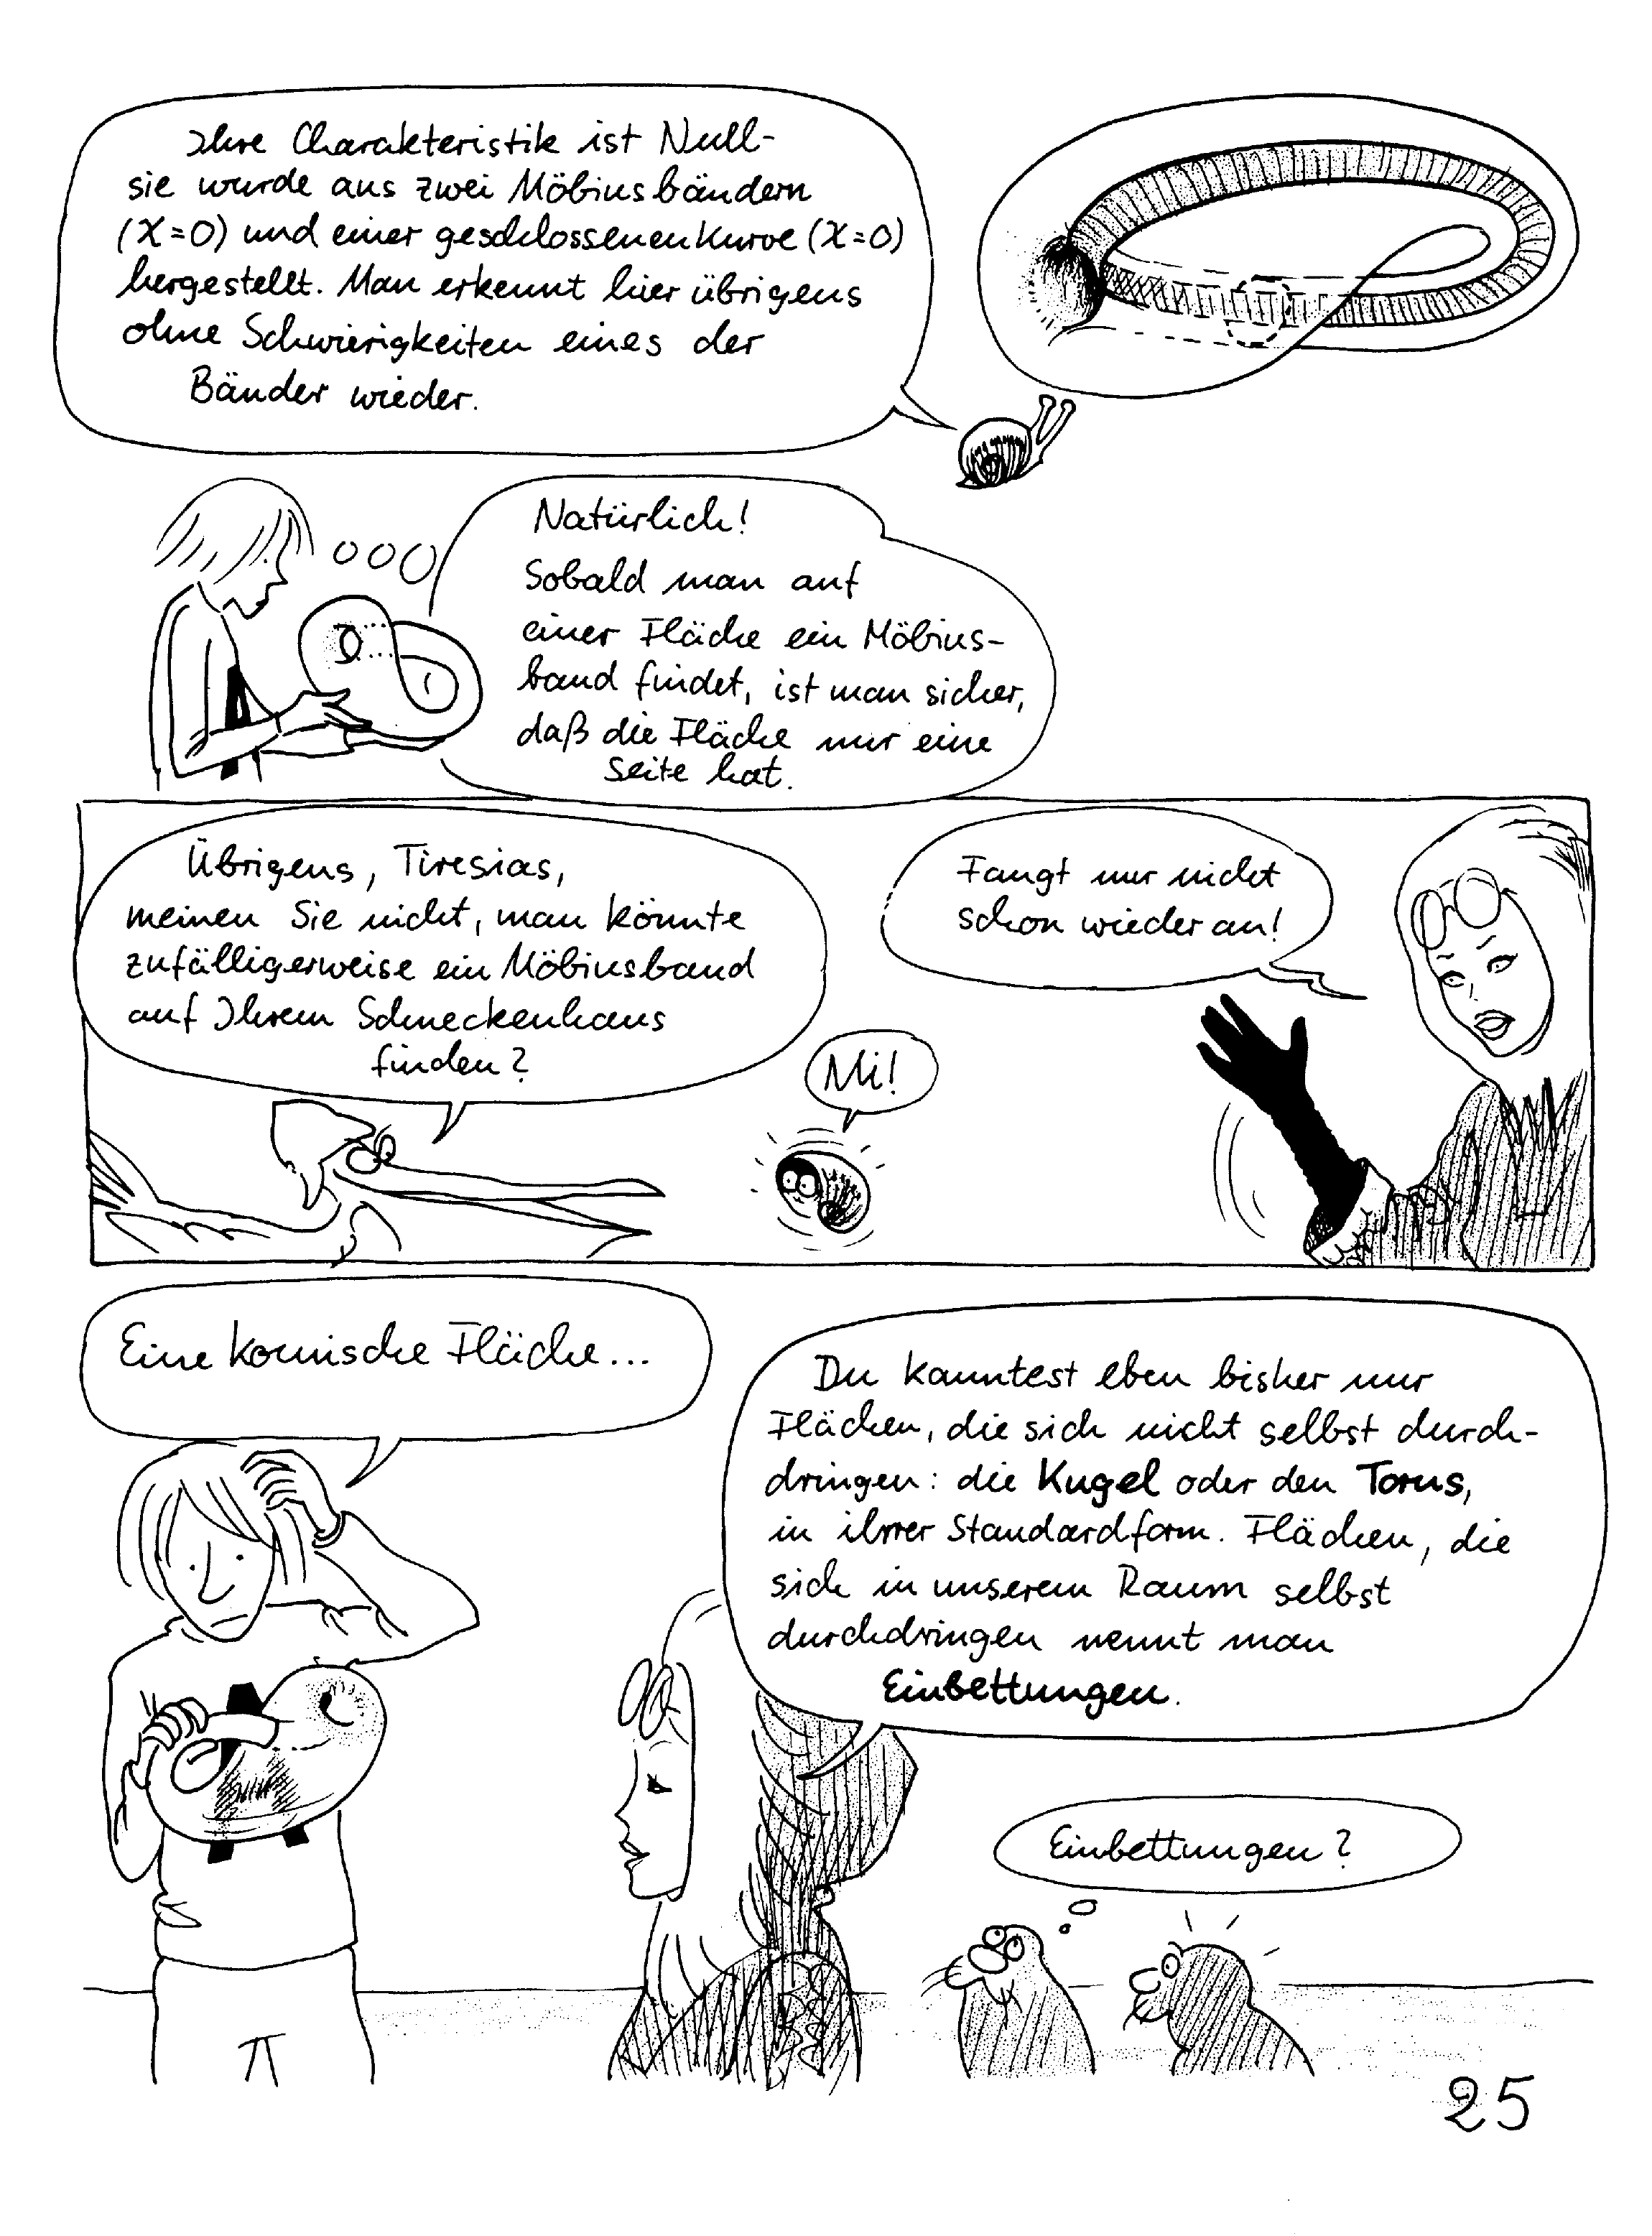 Ihre Charakteristik ist Null-
sie wurde aus zwei Möbiusbändern
(X=0) und einer geschlossenen Kurve (X=0)
hergestellt. Man erkennt hier übrigens
ohne Schwierigkeiten eines der
Bänder wieder.
Natürlich!
Sobald man auf
einer Fläche ein Möbius-
band findet, ist man sicher,
daß die Fläche nur eine
Seite hat.
Übrigens, Tiresias,
meinen Sie nicht, man könnte
zufälligerweise ein Möbiusband
auf Ihrem Schneckenhaus
finden?
Mi!
Fangt nur nicht
schon wieder an!
Eine komische Fläche...
Du kanntest eben bisher nur
Flächen, die sich nicht selbst durch-
dringen: die Kugel oder den Torus,
in ihrer Standardform. Flächen, die
sich in unserem Raum selbst
durchdringen nennt man
Einbettungen.
Einbettungen?
25